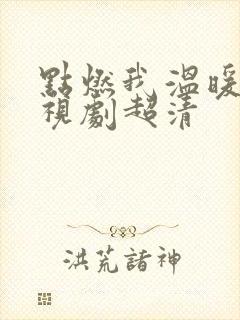 點燃我 溫暖
視劇超清
洪荒諸神